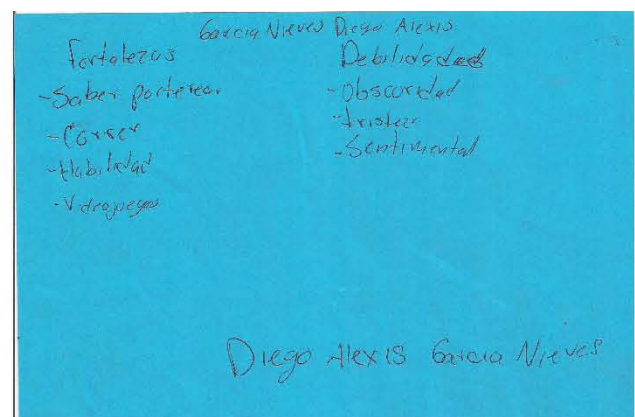 Garcia Nieves Diego Alexis
Fortalezas
- Saber porterear
- Correr
- Habilidad
- Videojuegos
Debilidades
- Obscuridad
- tristeza
- Sentimental
Diego Alexis Garcia Nieves